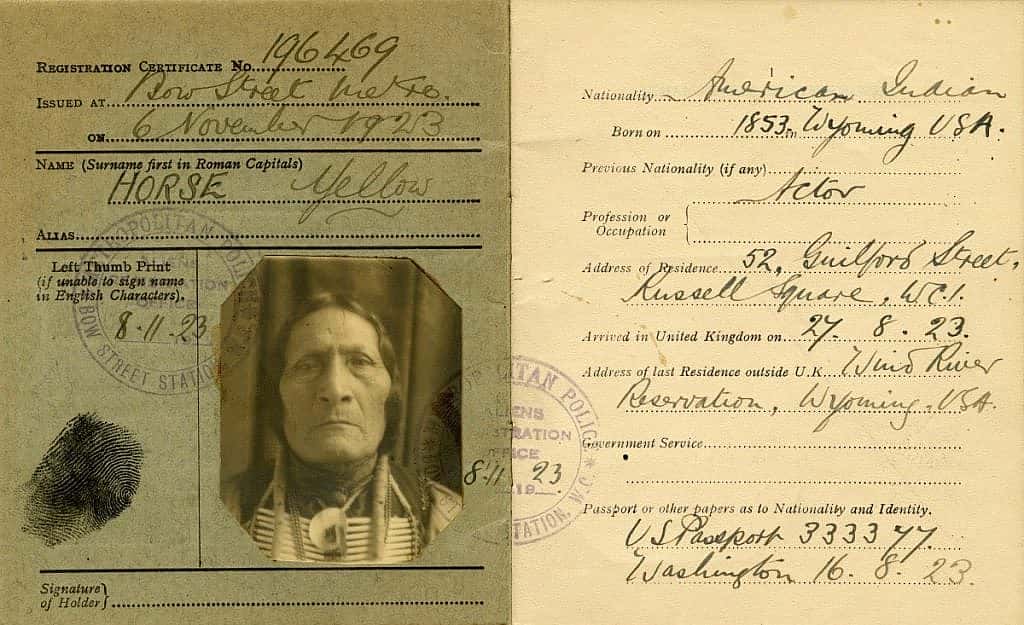 REGISTRATION CERTIFICATE No. 196469
ISSUED AT Bow Street Metro.
ON 6 November 1923
NAME (Surname first in Roman Capitals)
HORSE Yellow
ALIAS
Left Thumb Print
(if unable to sign name
in English Characters).
8.11.23
METROPOLITAN POLICE
BOW STREET STATION
Signature
of Holder
Nationality American Indian
Born on 1853 in Wyoming USA.
Previous Nationality (if any)
Profession or
Occupation
Actor
Address of Residence 52, Guilford Street,
Russell Square, WC1.
Arrived in United Kingdom on 27. 8. 23.
Address of last Residence outside U.K. Wind River
Reservation, Wyoming. USA.
Government Service
POLITAN POLICE
ALIENS
STRATION
OFFICE
8.11.23
19
STATION, W.C.
Passport or other papers as to Nationality and Identity.
US Passport 333377.
Washington 16. 8. 23.